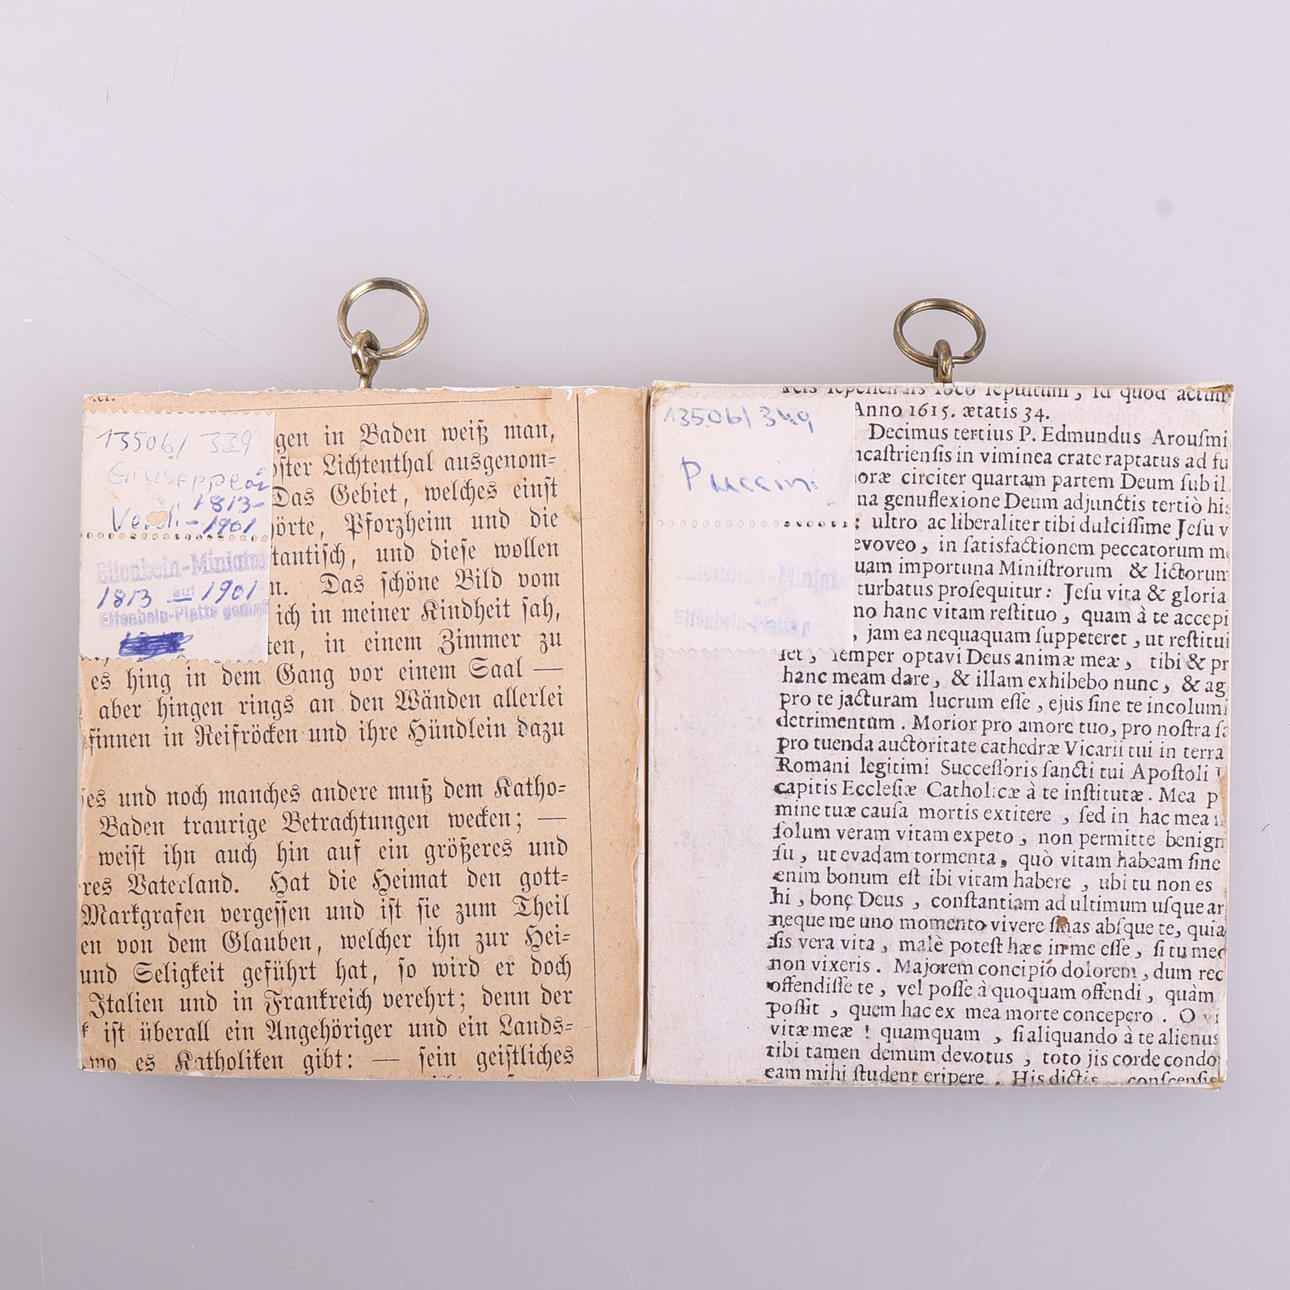 13506/ 339
Giuseppe
Verdi 1813-
-1901
Elfenbein-Miniatur
1813 – 1901
auf
Elfenbein-Platte gemalt
gen in Baden weiß man,
ster Lichtenthal ausgenom-
Das Gebiet, welches einst
örte, Pforzheim und die
tantisch, und diese wollen
n. Das schöne Bild vom
ich in meiner Kindheit sah,
ten, in einem Zimmer zu
es hing in dem Gang vor einem Saal —
aber hingen rings an den Wänden allerlei
sinnen in Reifröcken und ihre Hündlein dazu
es und noch manches andere muß dem Katho-
Baden traurige Betrachtungen wecken; —
weist ihn auch hin auf ein größeres und
res Vaterland. Hat die Heimat den gott-
Markgrafen vergessen und ist sie zum Theil
en von dem Glauben, welcher ihn zur Hei-
und Seligkeit geführt hat, so wird er doch
Italien und in Frankreich verehrt; denn der
ist überall ein Angehöriger und ein Lands-
wo es Katholiken gibt: — sein geistliches
13506/ 349
Puccini
Elfenbein-Miniatur
auf
Elfenbein-Platte
loco sepultum, id quod actum
Anno 1615. ætatis 34.
Decimus tertius P. Edmundus Arouſmi
ncaſtrienſis in viminea crate raptatus ad fu
oræ circiter quartam partem Deum ſub il
na genuflexione Deum adjunctis tertiò his
: ultro ac liberaliter tibi dulciſſime Jeſu v
evoveo, in ſatisfactionem peccatorum m
uam importuna Miniſtrorum & lictorum
turbatus proſequitur: Jeſu vita & gloria
no hanc vitam reſtituo, quam à te accepi
, jam ea nequaquam ſuppeteret, ut reſtitui
ſet, ſemper optavi Deus animæ meæ, tibi & pr
hanc meam dare, & illam exhibebo nunc, & ag
pro te jacturam lucrum eſſe, ejus ſine te incolumi
detrimentum. Morior pro amore tuo, pro noſtra
pro tuenda auctoritate cathedræ Vicarii tui in terra
Romani legitimi Succeſſoris ſancti tui Apoſtoli
capitis Eccleſiæ Catholicæ à te inſtitutæ. Mea p
mine tuæ cauſa mortis extitere, ſed in hac mea
ſolum veram vitam expeto, non permitte benign
ſu, ut evadam tormenta, quò vitam habeam ſine
enim bonum eſt ibi vitam habere, ubi tu non es
hi, bone Deus, conſtantiam ad ultimum uſque
neque me uno momento vivere ſinas abſque te, quia
ſis vera vita, malè poteſt hæc in me eſſe, ſi tu mec
non vixeris. Majorem concipio dolorem, dum rec
offendiſſe te, vel poſſe à quoquam offendi, quàm
poſſit, quem hac ex mea morte concepero. O
vitæ meæ! quamquam, ſi aliquando à te alienus
tibi tamen demum devotus, toto jis corde condo
eam mihi ſtudent eripere. His dictis conſcenſis